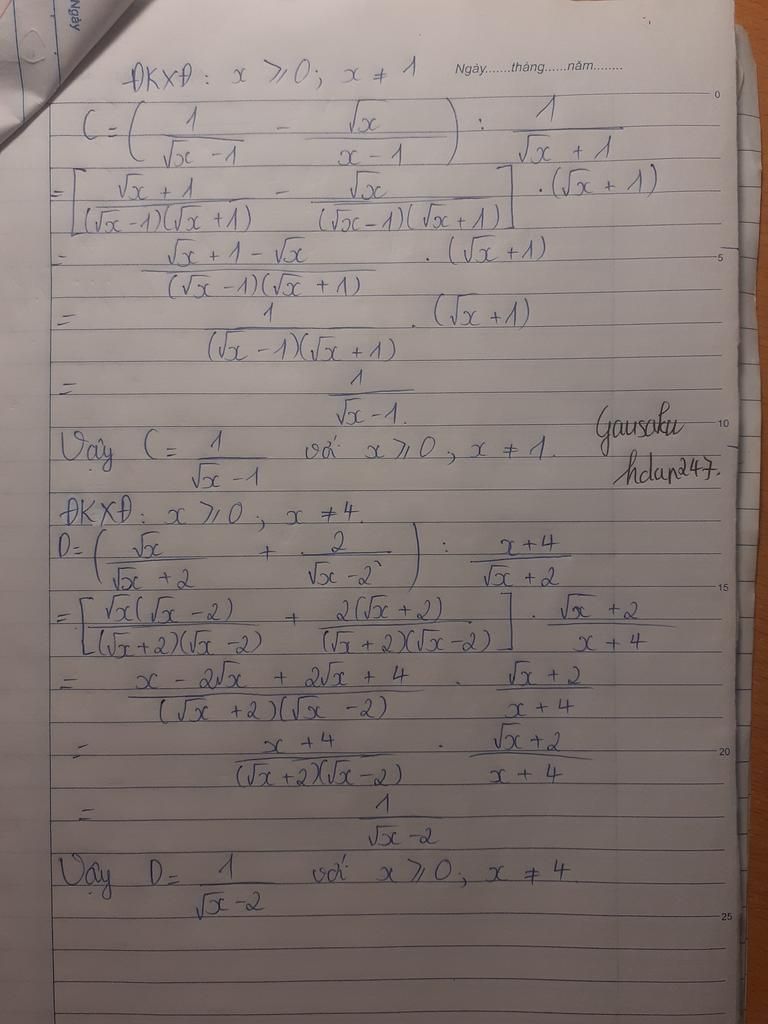 Ngày
ĐKXĐ: x ⩾ 0; x ≠ 1
Ngày.......tháng......năm........
C = (1/(√x - 1) - √x/(x - 1)) : 1/(√x + 1)
= [(√x + 1)/((√x - 1)(√x + 1)) - √x/((√x - 1)(√x + 1))] . (√x + 1)
= (√x + 1 - √x)/((√x - 1)(√x + 1)) . (√x + 1)
= 1/((√x - 1)(√x + 1)) . (√x + 1)
= 1/(√x - 1).
Vậy C = 1/(√x - 1) với x ⩾ 0, x ≠ 1.
hdan247.
ĐKXĐ: x ⩾ 0; x ≠ 4.
D = (√x/(√x + 2) + 2/(√x - 2)) : (x + 4)/(√x + 2)
= [√x(√x - 2)/((√x + 2)(√x - 2)) + 2(√x + 2)/((√x + 2)(√x - 2))] . (√x + 2)/(x + 4)
= (x - 2√x + 2√x + 4)/((√x + 2)(√x - 2)) . (√x + 2)/(x + 4)
= (x + 4)/((√x + 2)(√x - 2)) . (√x + 2)/(x + 4)
= 1/(√x - 2)
Vậy D = 1/(√x - 2) với x ⩾ 0; x ≠ 4
0
5
10
15
20
25